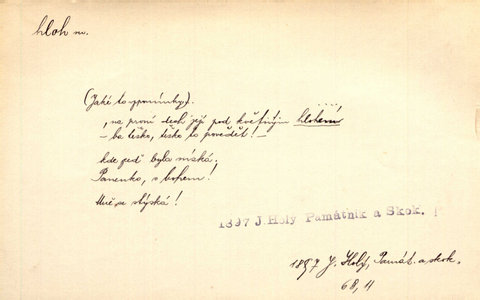 hloh m.
(Jaké to vzpomínky).
, na první dech její pod květným hlohem
– ba těžko, těžko to povědět! –
kde pouť byla nízká,
Panenko, s bohem!
Mně se stýská!
1897 J. Holý Památník a Skok.
1897 J. Holý, Památ. a skok.
68, 11